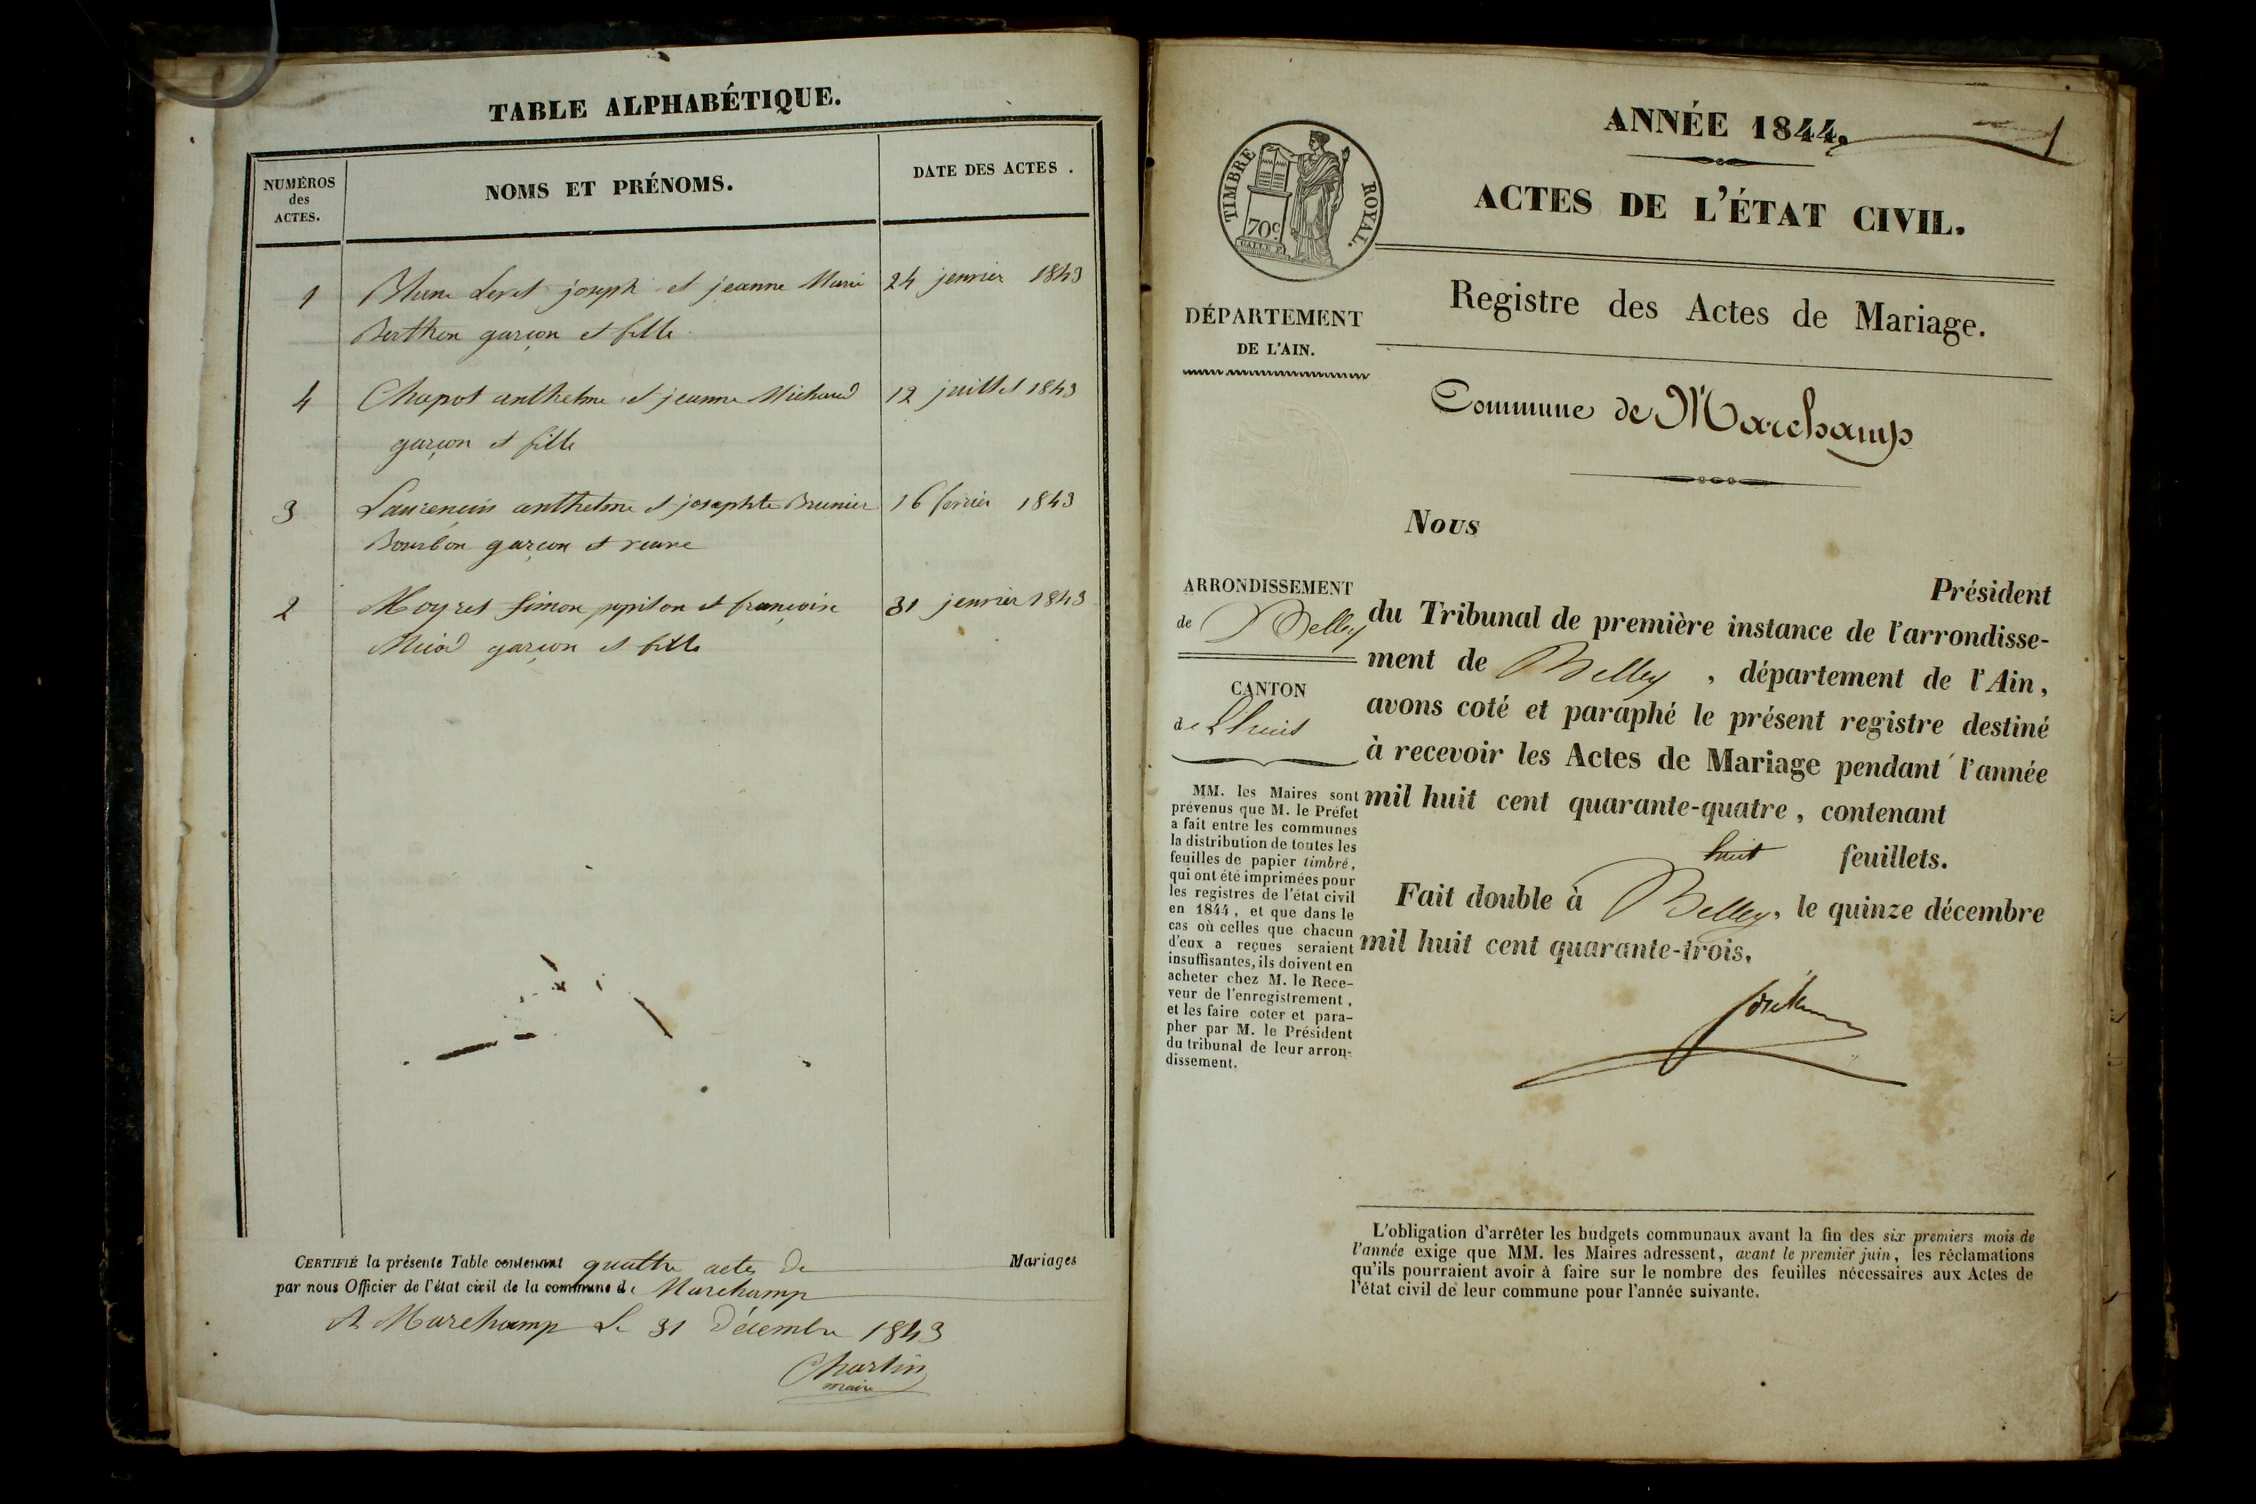 TABLE ALPHABÉTIQUE.
NUMÉROS
des
ACTES.
NOMS ET PRÉNOMS.
DATE DES ACTES.
1 joseph et jeanne Marie 24 jenvier 1843
Berthon garçon et fille
4 Chapot anthelme et jeanne Michaud 12 juillet 1843
garçon et fille
3 Laurencin anthelme et josephte Brunier 16 fevrier 1843
Bourbon garçon et veuve
2 Moyret simon et françoise 31 jenvier 1843
garçon et fille
CERTIFIÉ la présente Table contenant quattre actes de Mariages
par nous Officier de l'état civil de la commune de Marchamp
A Marchamp Le 31 Décembre 1843
Chartin
maire
ANNÉE 1844.
1
ACTES DE L'ÉTAT CIVIL.
TIMBRE ROYAL.
70c
DÉPARTEMENT
DE L'AIN.
Registre des Actes de Mariage.
Commune de Marchamp
Nous
Président
ARRONDISSEMENT
de Belley
CANTON
de Lhuis
du Tribunal de première instance de l'arrondisse-
ment de Belley, département de l'Ain,
avons coté et paraphé le présent registre destiné
à recevoir les Actes de Mariage pendant l'année
mil huit cent quarante-quatre, contenant
huit feuillets.
Fait double à Belley, le quinze décembre
mil huit cent quarante-trois.
MM. les Maires sont
prévenus que M. le Préfet
a fait entre les communes
la distribution de toutes les
feuilles de papier timbré,
qui ont été imprimées pour
les registres de l'état civil
en 1844, et que dans le
cas où celles que chacun
d'eux a reçues seraient
insuffisantes, ils doivent en
acheter chez M. le Rece-
veur de l'enregistrement,
et les faire coter et para-
pher par M. le Président
du tribunal de leur arron-
dissement.
L'obligation d'arrêter les budgets communaux avant la fin des six premiers mois de
l'année exige que MM. les Maires adressent, avant le premier juin, les réclamations
qu'ils pourraient avoir à faire sur le nombre des feuilles nécessaires aux Actes de
l'état civil de leur commune pour l'année suivante.